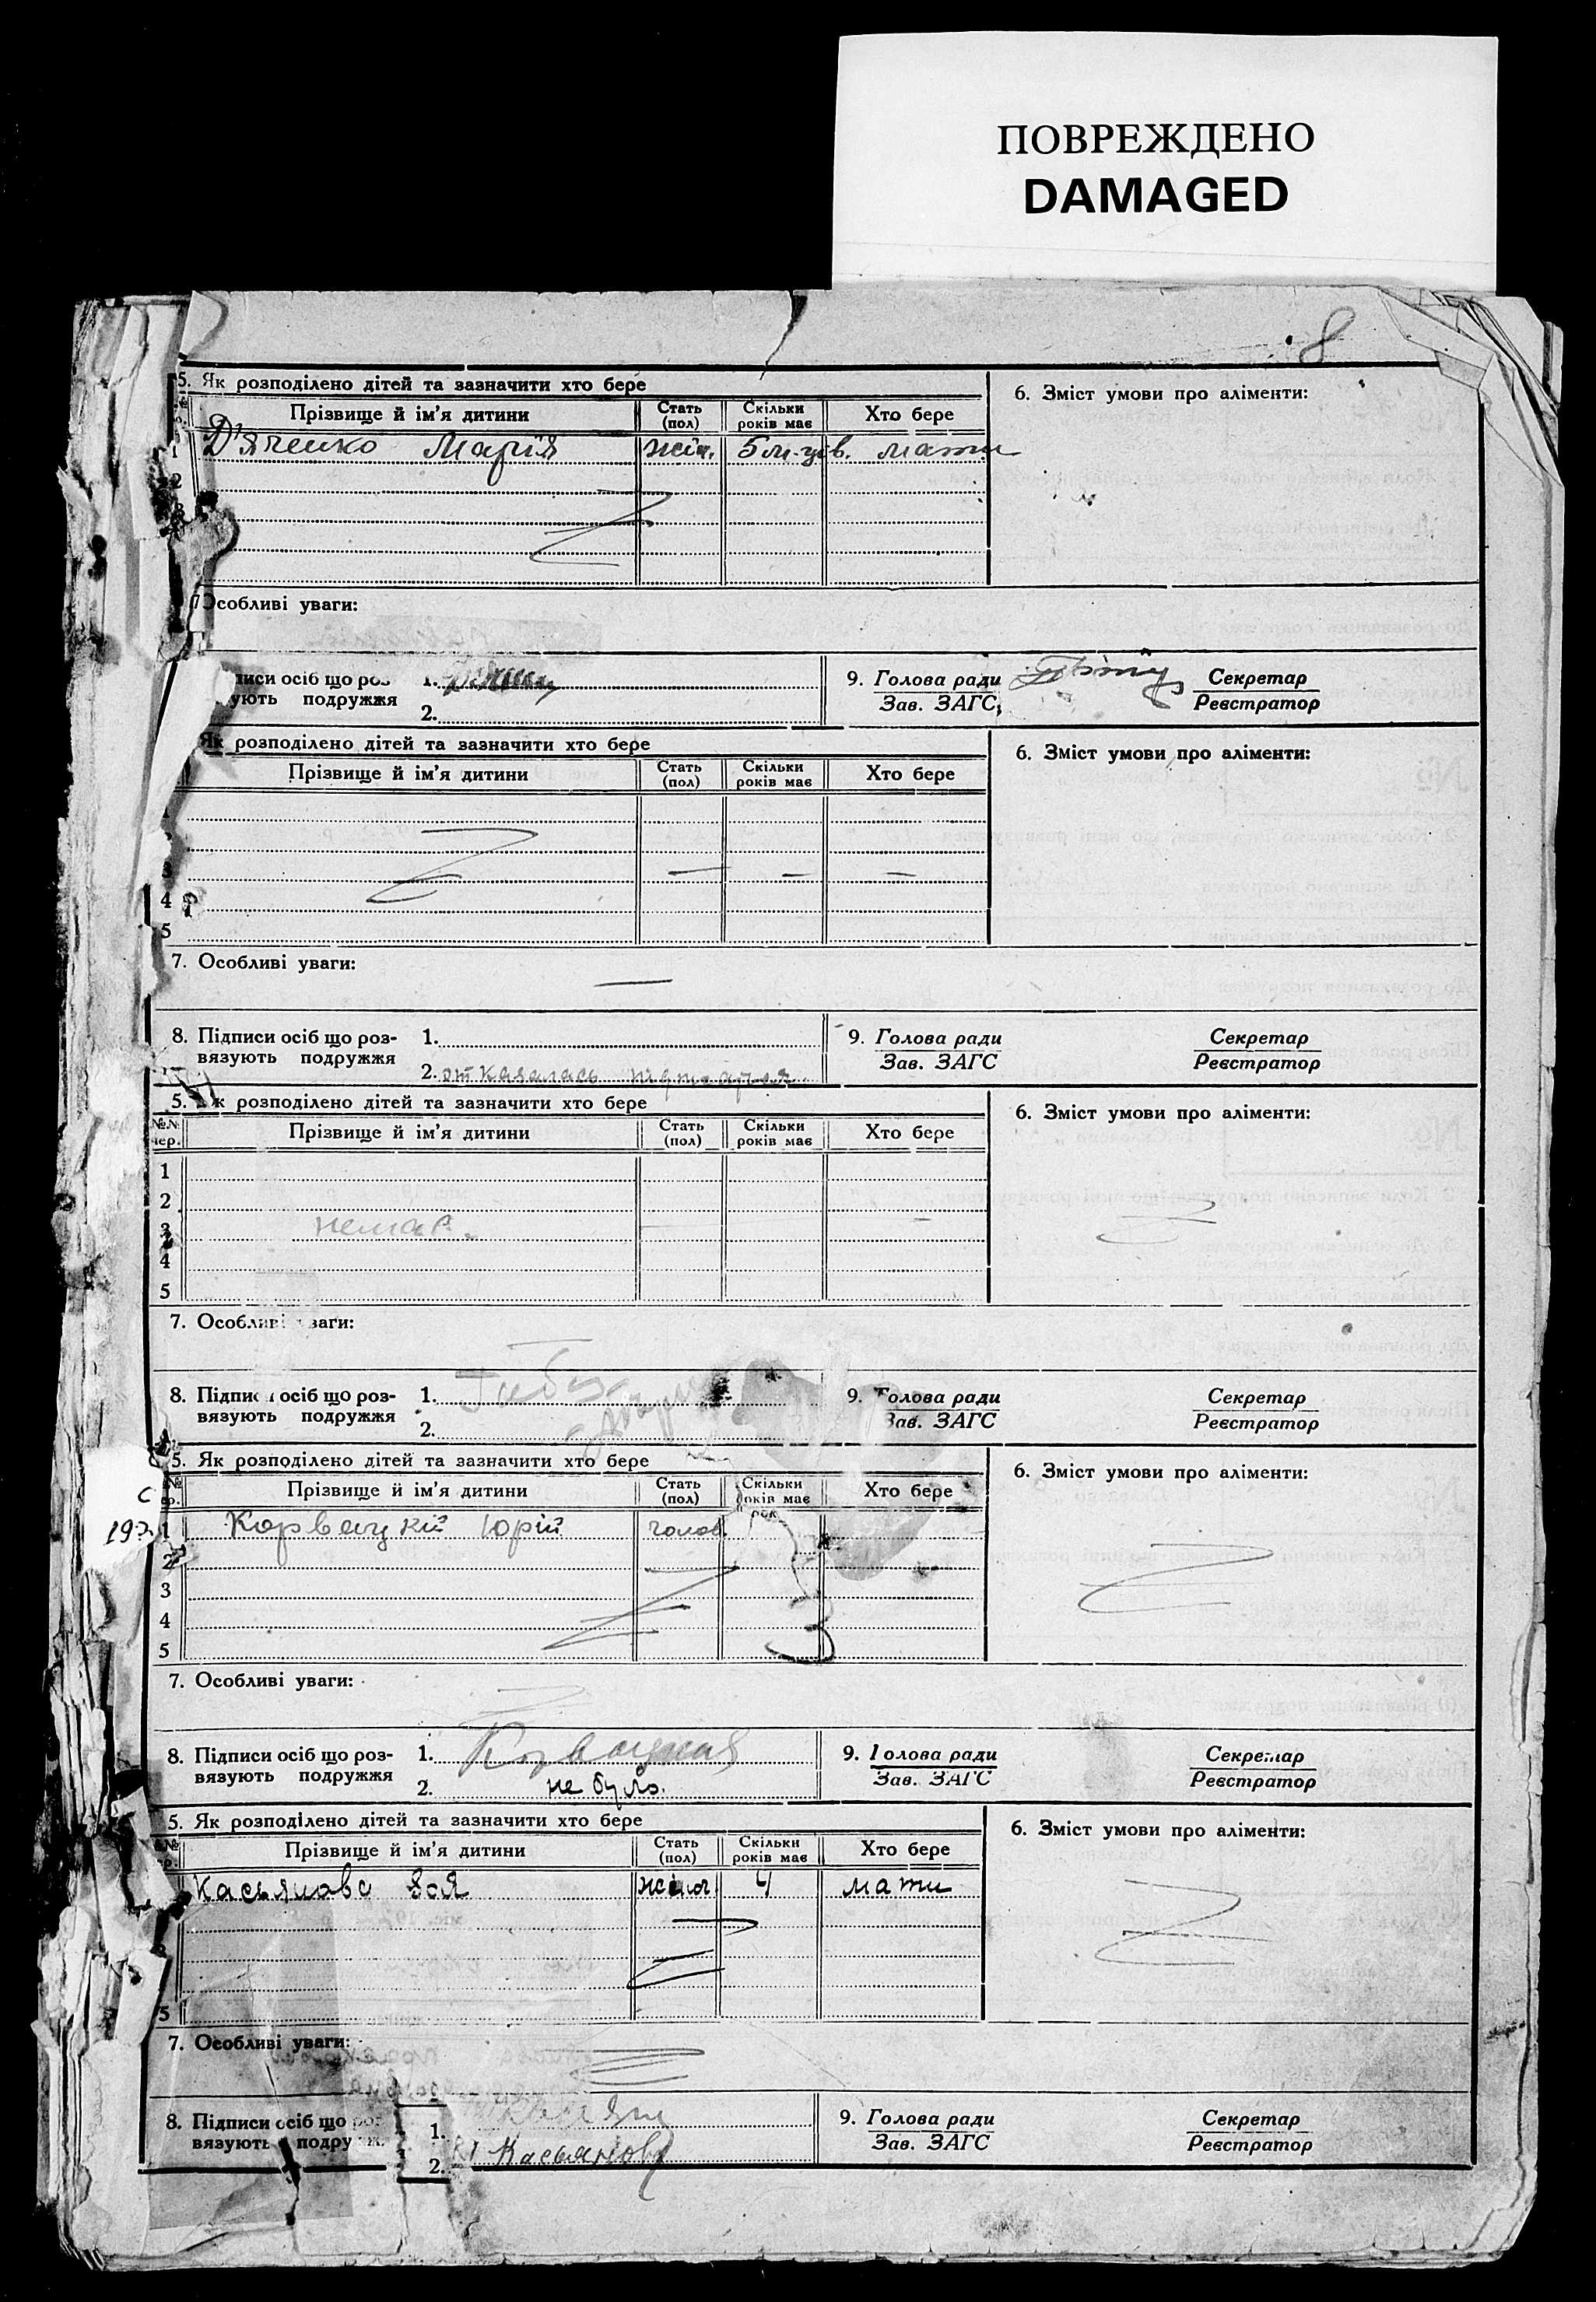 ПОВРЕЖДЕНО
DAMAGED
8
5. Як розподілено дітей та зазначити хто бере
6. Зміст умови про аліменти:
Прізвище й ім'я дитини Стать (пол) Скільки років має Хто бере
1 Д'яченко Марія жін. 5 м-ців. мати
2
Особливі уваги:
писи осіб що роз- 1.
ують подружжя 2.
9. Голова ради Секретар
Зав. ЗАГС, Реєстратор
Як розподілено дітей та зазначити хто бере
6. Зміст умови про аліменти:
Прізвище й ім'я дитини Стать (пол) Скільки років має Хто бере
3 — — —
4
5
7. Особливі уваги: —
8. Підписи осіб що роз- 1.
вязують подружжя 2. отказалась
9. Голова ради Секретар
Зав. ЗАГС Реєстратор
5. Як розподілено дітей та зазначити хто бере
6. Зміст умови про аліменти:
№№ чер. Прізвище й ім'я дитини Стать (пол) Скільки років має Хто бере
1
2
3 немає.
4
5
7. Особливі уваги:
8. Підписи осіб що роз- 1.
вязують подружжя 2.
9. Голова ради Секретар
Зав. ЗАГС Реєстратор
5. Як розподілено дітей та зазначити хто бере
6. Зміст умови про аліменти:
Прізвище й ім'я дитини Стать (пол) Скільки років має Хто бере
1 Корвацкій Юрій чолов.
2
3
4
5
7. Особливі уваги:
8. Підписи осіб що роз- 1.
вязують подружжя 2. не було.
9. Голова ради Секретар
Зав. ЗАГС Реєстратор
5. Як розподілено дітей та зазначити хто бере
6. Зміст умови про аліменти:
Прізвище й ім'я дитини Стать (пол) Скільки років має Хто бере
Касьянова Зоя жіноч. 4 мати
5
7. Особливі уваги:
8. Підписи осіб що роз- 1.
вязують подруж. 2. Касьянова
9. Голова ради Секретар
Зав. ЗАГС Реєстратор